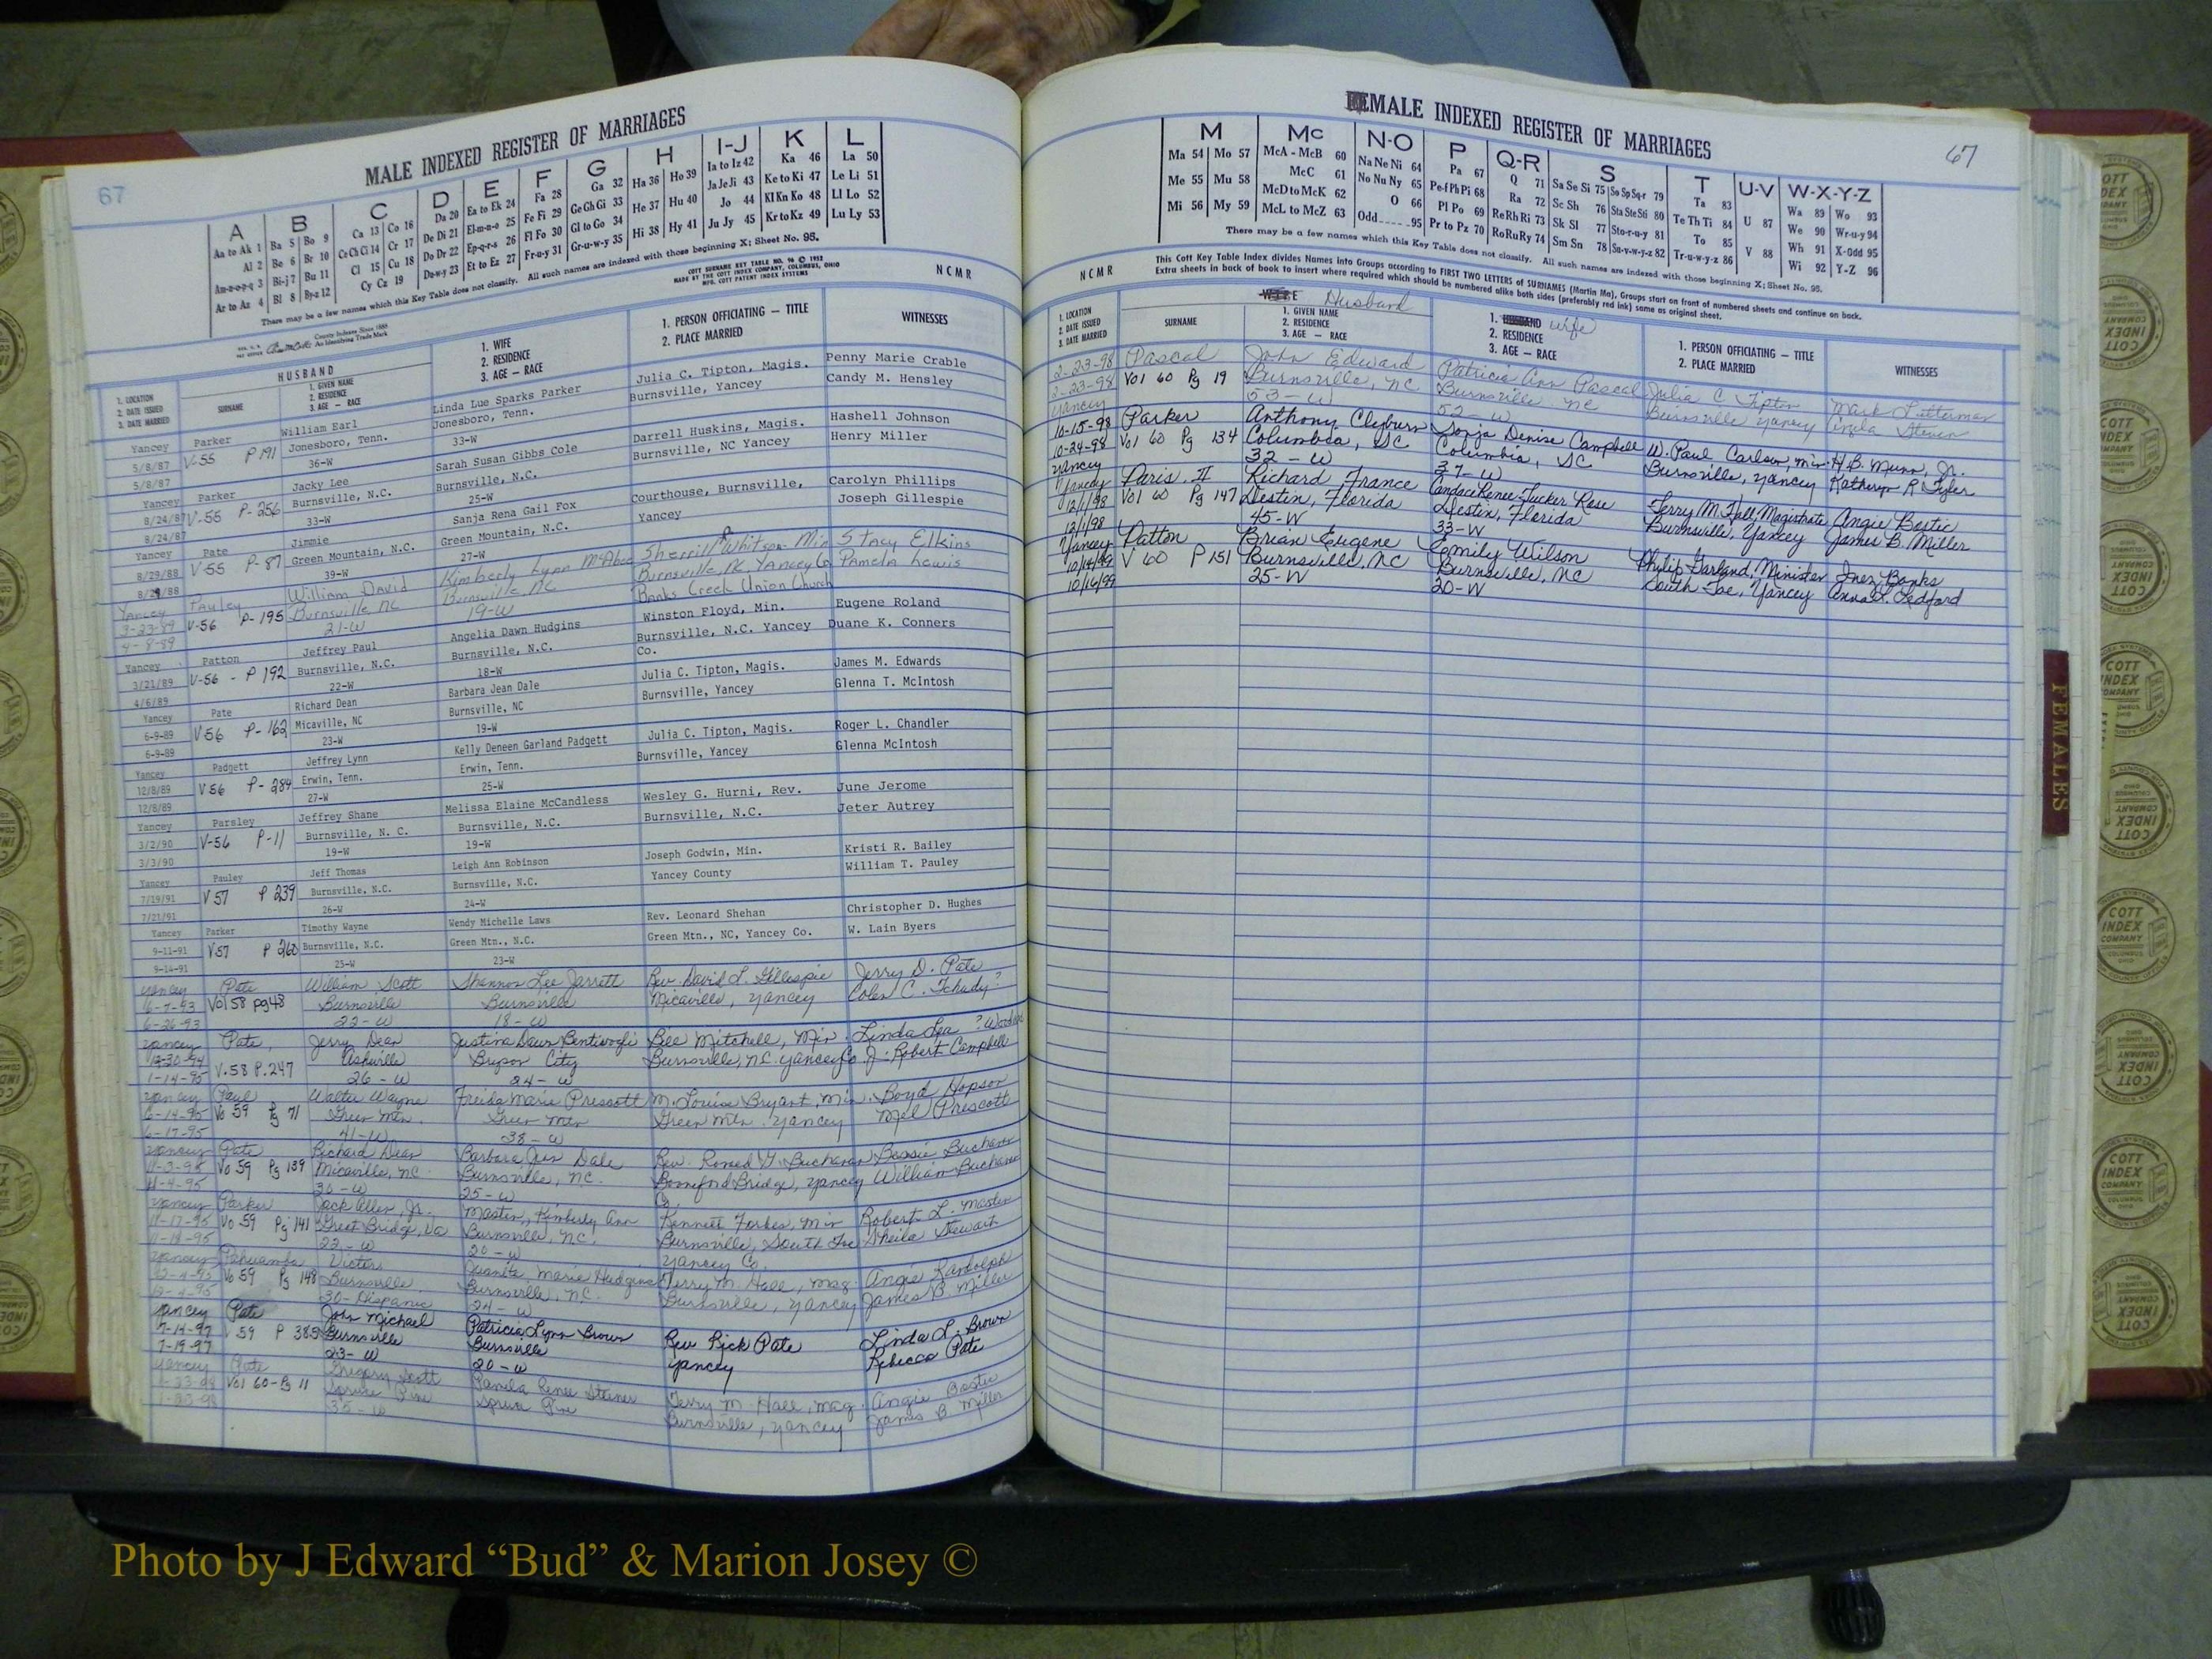 67
MALE INDEXED REGISTER OF MARRIAGES
A B C D E F G H I-J K L
Aa to Ak 1 Ba 5 Bo 9 Ca 13 Co 16 Da 20 Ea to Ek 24 Fa 28 Ga 32 Ha 36 Ho 39 Ia to Iz 42 Ka 46 La 50
Al 2 Be 6 Br 10 Ce Ch Ci 14 Cr 17 De Di 21 El-m-n-o 25 Fe Fi 29 Ge Gh Gi 33 He 37 Hu 40 Ja Je Ji 43 Ke to Ki 47 Le Li 51
Am-n-o-p-q 3 Bi-j 7 Bu 11 Cl 15 Cu 18 Do Dr 22 Ep-q-r-s 26 Fl Fo 30 Gl to Go 34 Hi 38 Hy 41 Jo 44 Kl Kn Ko 48 Ll Lo 52
Ar to Az 4 Bl 8 By-z 12 Cy Cz 19 Du-w-y 23 Et to Ez 27 Fr-u-y 31 Gr-u-w-y 35 Ju Jy 45 Kr to Kz 49 Lu Ly 53
There may be a few names which this Key Table does not classify. All such names are indexed with those beginning X; Sheet No. 95.
County Indexes Since 1888
An Identifying Trade Mark
COTT SURNAME KEY TABLE NO. 96 © 1952
MADE BY THE COTT INDEX COMPANY, COLUMBUS, OHIO
MFG. COTT PATENT INDEX SYSTEMS
NCMR
1. LOCATION
2. DATE ISSUED
3. DATE MARRIED
HUSBAND
SURNAME
1. GIVEN NAME
2. RESIDENCE
3. AGE — RACE
1. WIFE
2. RESIDENCE
3. AGE — RACE
1. PERSON OFFICIATING — TITLE
2. PLACE MARRIED
WITNESSES
Yancey Parker William Earl Linda Lue Sparks Parker Julia C. Tipton, Magis. Penny Marie Crable
5/8/87 V-55 P 191 Jonesboro, Tenn. Jonesboro, Tenn. Burnsville, Yancey Candy M. Hensley
5/8/87 36-W 33-W
Yancey Parker Jacky Lee Sarah Susan Gibbs Cole Darrell Huskins, Magis. Hashell Johnson
8/24/87 V-55 P-256 Burnsville, N.C. Burnsville, N.C. Burnsville, NC Yancey Henry Miller
8/24/87 33-W 25-W
Yancey Pate Jimmie Sanja Rena Gail Fox Courthouse, Burnsville, Carolyn Phillips
8/29/88 V-55 P-87 Green Mountain, N.C. Green Mountain, N.C. Yancey Joseph Gillespie
8/29/88 39-W 27-W
Yancey Pauley William David Kimberly Lynn McAbee Sherrill Whitson Min Stacy Elkins
3-23-89 V-56 P-195 Burnsville NC Burnsville, NC Burnsville, NC Yancey Co Pamela Lewis
4-8-89 21-W 19-W Banks Creek Union Church
Yancey Patton Jeffrey Paul Angelia Dawn Hudgins Winston Floyd, Min. Eugene Roland
3/21/89 V-56 - P 192 Burnsville, N.C. Burnsville, N.C. Burnsville, N.C. Yancey Co. Duane K. Conners
4/6/89 22-W 18-W
Yancey Pate Richard Dean Barbara Jean Dale Julia C. Tipton, Magis. James M. Edwards
6-9-89 V56 P-162 Micaville, NC Burnsville, NC Burnsville, Yancey Glenna T. McIntosh
6-9-89 23-W 19-W
Yancey Padgett Jeffrey Lynn Kelly Deneen Garland Padgett Julia C. Tipton, Magis. Roger L. Chandler
12/8/89 V56 P-284 Erwin, Tenn. Erwin, Tenn. Burnsville, Yancey Glenna McIntosh
12/8/89 27-W 25-W
Yancey Parsley Jeffrey Shane Melissa Elaine McCandless Wesley G. Hurni, Rev. June Jerome
3/2/90 V-56 P-11 Burnsville, N. C. Burnsville, N.C. Burnsville, N.C. Jeter Autrey
3/3/90 19-W 19-W
Yancey Pauley Jeff Thomas Leigh Ann Robinson Joseph Godwin, Min. Kristi R. Bailey
7/19/91 V57 P 239 Burnsville, N.C. Burnsville, N.C. Yancey County William T. Pauley
7/21/91 26-W 24-W
Yancey Parker Timothy Wayne Wendy Michelle Laws Rev. Leonard Shehan Christopher D. Hughes
9-11-91 V57 P 260 Burnsville, N.C. Green Mtn., N.C. Green Mtn., NC, Yancey Co. W. Lain Byers
9-14-91 25-W 23-W
Yancey Pate William Scott Shannon Lee Jarrett Rev. David L. Gillespie Jerry D. Pate
6-7-93 Vol 58 pg 48 Burnsville Burnsville Micaville, Yancey Coler C. Tchudy?
6-26-93 22-W 18-W
Yancey Pate, Jerry Dean Justina Dawn Bill Mitchell, Min. Linda Lea ?
12-30-94 V.58 P.247 Asheville Bryson City Burnsville, NC. Yancey Co J. Robert Campbell
1-14-95 26-W 24-W
Yancey Paul Walter Wayne Freida Marie Prescott M. Louise Bryant, Min. Boyd Hopson
6-14-95 Vo 59 Pg 71 Green Mtn. Green Mtn Green Mtn. Yancey Mel Prescott
6-17-95 41-W 38-W
Yancey Pate Richard Dean Barbara Jean Dale Rev. Buchanan Bessie Buchanan
11-3-95 Vo 59 Pg 139 Micaville, NC. Burnsville, NC. Booneford Bridge, Yancey Co William Buchanan
11-4-95 30-W 25-W
Yancey Parker Jack Allen, Jr. Masters, Kimberly Ann Kenneth Forbes, Min Robert L. Masters
11-17-95 Vo 59 Pg 141 Great Bridge, Va Burnsville, N.C. Burnsville, South Toe Sheila Stewart
11-18-95 22-W 20-W Yancey Co.
Yancey Victor Juanita Marie Hudgins Terry M. Hall, Mag. Angie Randolph
12-4-95 Vo 59 Pg 148 Burnsville Burnsville, N.C. Burnsville, Yancey James B. Miller
12-4-95 30-Hispanic 24-W
Yancey Pate John Michael Patricia Lynn Brown Rev Rick Pate Linda L. Brown
7-14-97 V 59 P 385 Burnsville Burnsville Yancey Rebecca Pate
7-19-97 23-W 20-W
Yancey Pate Gregory Scott Pamela Renee Steiner Terry M. Hall, Mag. Angie Bostic
1-23-98 Vol 60-Pg 11 Spruce Pine Spruce Pine Burnsville, Yancey James B. Miller
1-23-98 35-W
FEMALE INDEXED REGISTER OF MARRIAGES
67
M Mc N-O P Q-R S T U-V W-X-Y-Z
Ma 54 Mo 57 McA - McB 60 Na Ne Ni 64 Pa 67 Q 71 Sa Se Si 75 So Sp Sq-r 79 Ta 83 U 87 Wa 89 Wo 93
Me 55 Mu 58 McC 61 No Nu Ny 65 Pe-f Ph Pi 68 Ra 72 Sc Sh 76 Sta Ste Sti 80 Te Th Ti 84 V 88 We 90 Wr-u-y 94
Mi 56 My 59 McD to McK 62 O 66 Pl Po 69 Re Rh Ri 73 Sk Sl 77 Sto-r-u-y 81 To 85 Wh 91 X-Odd 95
McL to McZ 63 Odd 95 Pr to Pz 70 Ro Ru Ry 74 Sm Sn 78 Su-v-w-y-z 82 Tr-u-w-y-z 86 Wi 92 Y-Z 96
There may be a few names which this Key Table does not classify. All such names are indexed with those beginning X; Sheet No. 95.
NCMR
This Cott Key Table Index divides Names into Groups according to FIRST TWO LETTERS of SURNAMES (Martin Ma), Groups start on front of numbered sheets and continue on back.
Extra sheets in back of book to insert where required which should be numbered alike both sides (preferably red ink) same as original sheet.
1. LOCATION
2. DATE ISSUED
3. DATE MARRIED
WIFE Husband
SURNAME
1. GIVEN NAME
2. RESIDENCE
3. AGE — RACE
1. HUSBAND wife
2. RESIDENCE
3. AGE — RACE
1. PERSON OFFICIATING — TITLE
2. PLACE MARRIED
WITNESSES
2-23-98 Pascal John Edward Patricia Ann Pascal Julia C Tipton Mark Letterman
2-23-98 Vol 60 Pg 19 Burnsville, NC Burnsville NC Burnsville Yancey
Yancey 53-W 52-W
10-15-98 Parker Anthony Clyburn Sonja Denise Campbell W. Paul Carlson, Min. H.B. Munn, Jr.
10-24-98 Vol 60 Pg 134 Columbia, SC Columbia, SC Burnsville, Yancey Katheryn R Tyler
Yancey 32-W 37-W
Yancey Paris, II Richard France Candace Renee Tucker Rose Terry M. Hall, Magistrate Angie Bostic
12/1/98 Vol 60 Pg 147 Destin, Florida Destin, Florida Burnsville, Yancey James B. Miller
12/1/98 45-W 33-W
Yancey Patton Brian Eugene Emily Wilson Philip Garland, Minister Inez Banks
10/14/99 V 60 P 151 Burnsville, NC Burnsville, NC South Toe, Yancey Anna L. Ledford
10/16/99 25-W 20-W
FEMALES
COTT INDEX COMPANY
Photo by J Edward “Bud” & Marion Josey ©